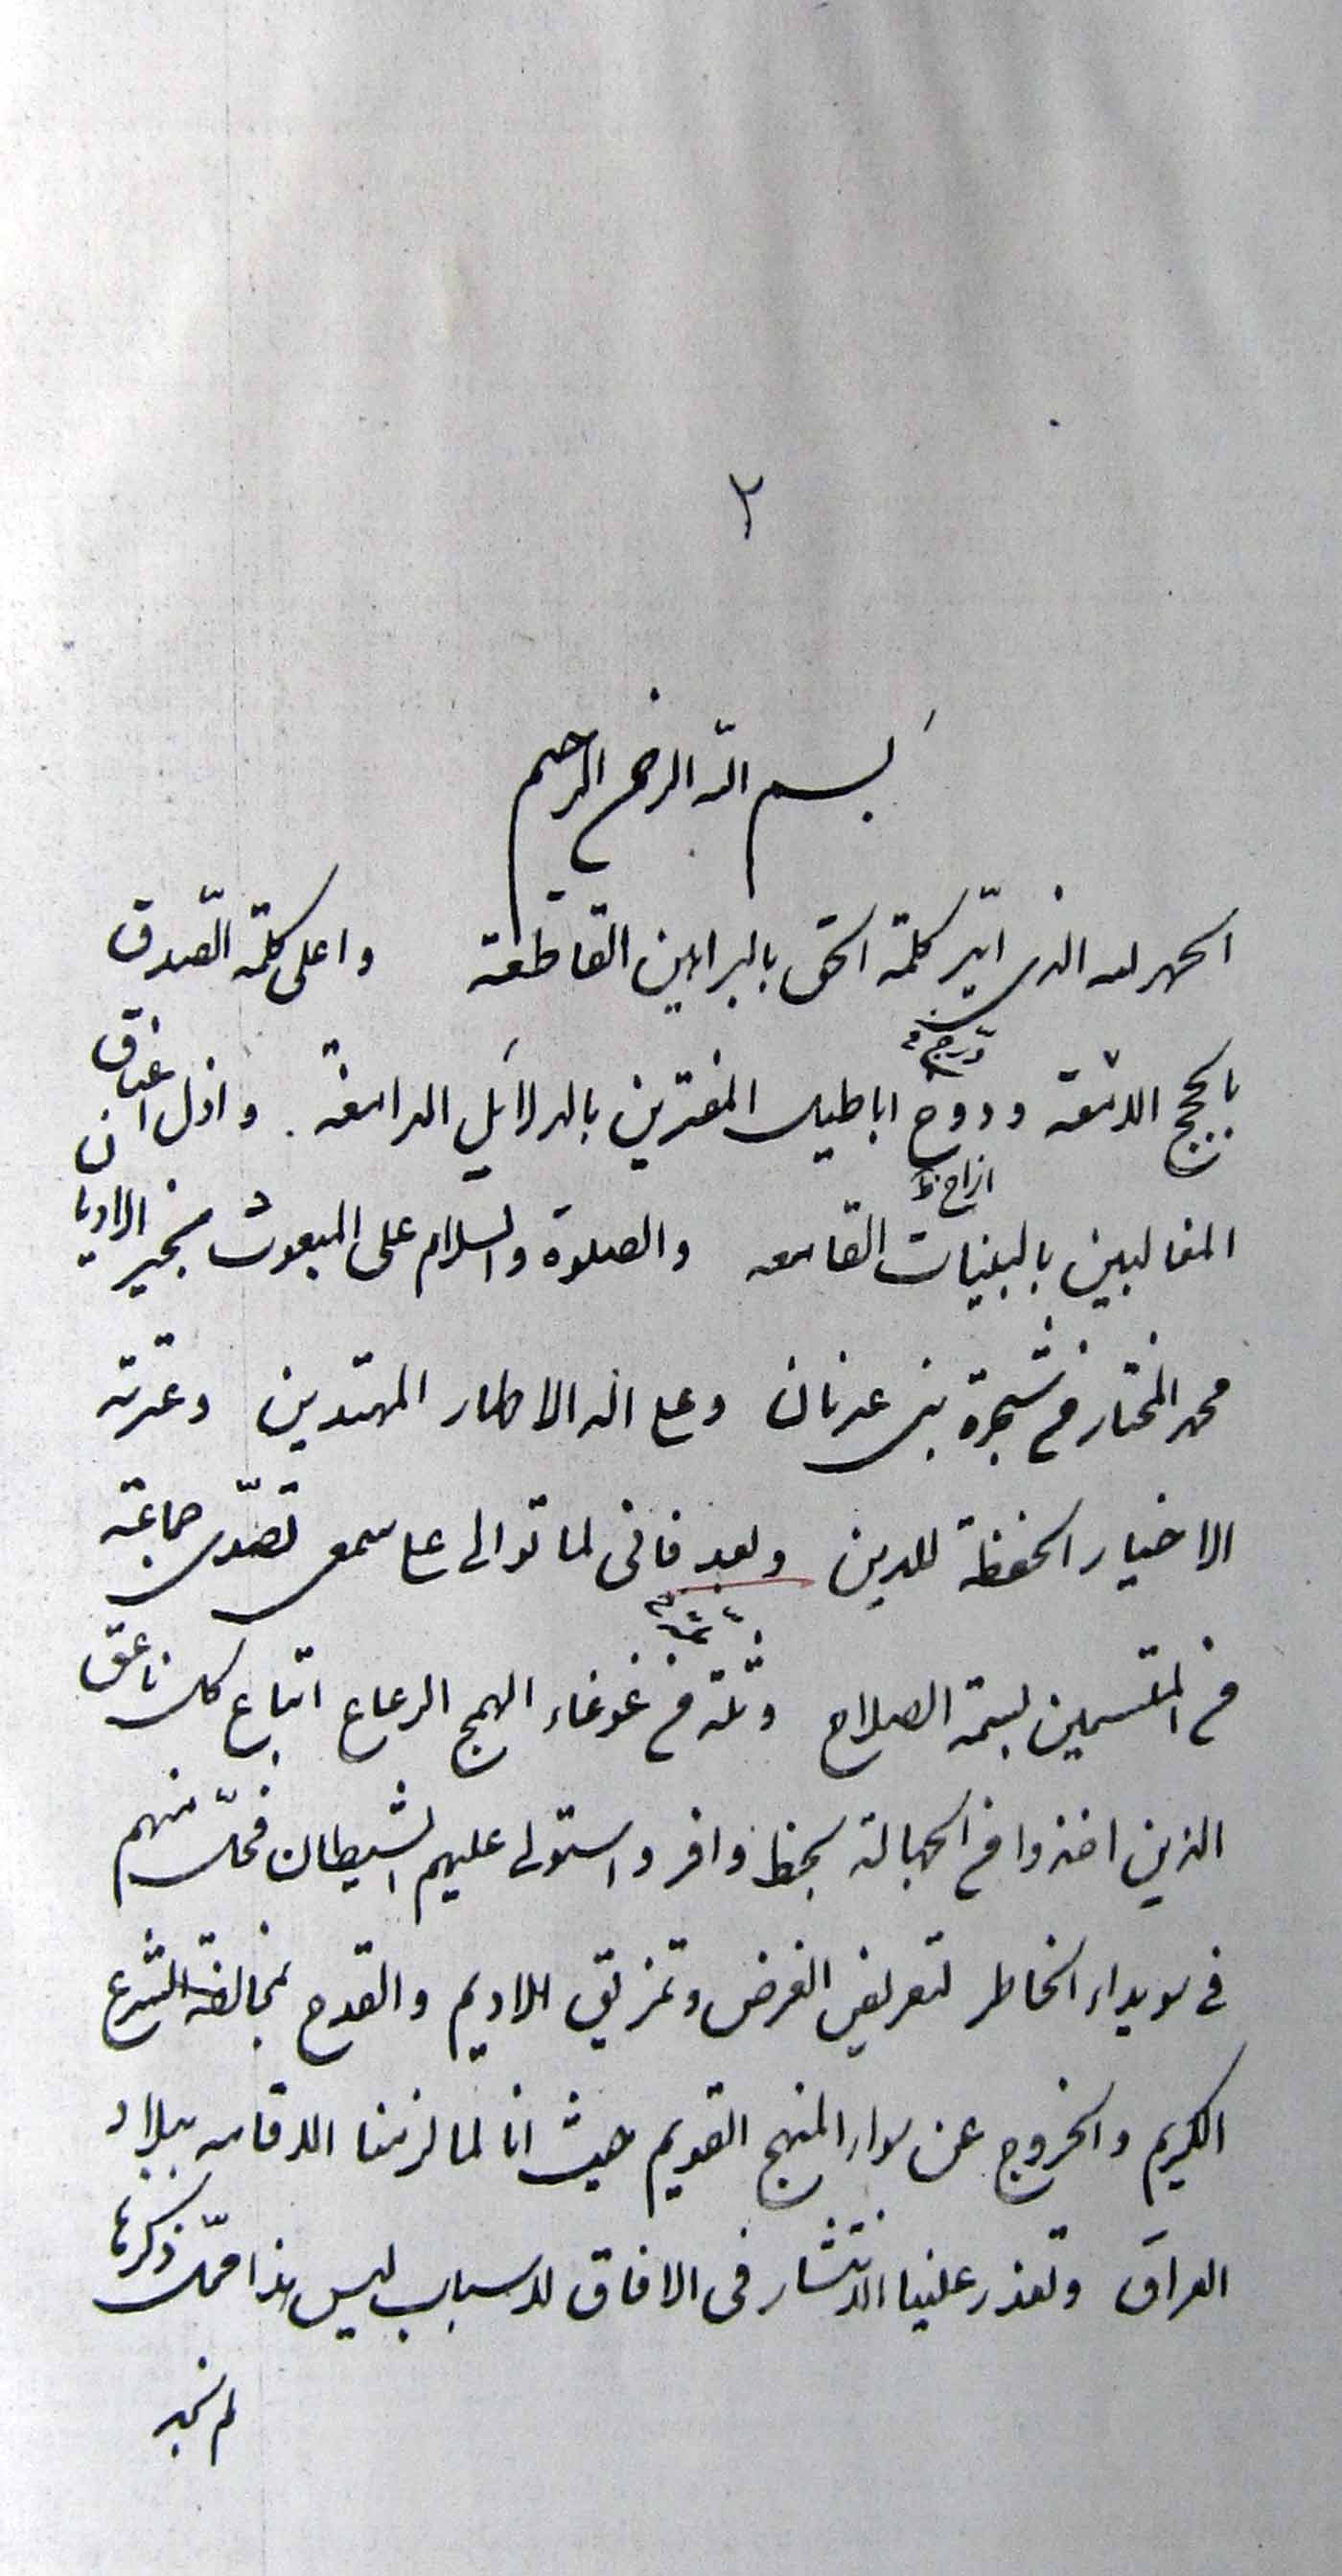 ٢
بسم الله الرحمن الرحيم
الحمد لله الذى ايّد كلمة الحق بالبراهين القاطعة واعلى كلمة الصّدق
بالحجج اللامعة ودوخ اباطيل المفترين بالدلائل الدامغة . واذل اعناق
ازاح ظ
المغالبين بالبينات القامعه والصلوة والسلام على المبعوث بخير الاديان
محمد المختار من شجرة بنى عدنان وعلى اله الاطهار المهتدين وعترته
الاخيار الحفظة للدين وبعد فانى لما توالى على سمعى تصدّى جماعة
من المتسمين بسمة الصلاح وثلّة من غوغاء الهمج الرعاع اتباع كل ناعق
الذين اخذوا من الجهالة بحظ وافر واستولى عليهم الشيطان فحلّ منهم
فى سويداء الخاطر لتعريض العرض وتمزيق الاديم والقدح بمخالفة الشرع
الكريم والخروج عن سواء المنهج القويم حيث انا لما لزمنا الاقامه ببلاد
العراق وتعذر علينا الانتشار فى الافاق لاسباب ليس هذا محلّ ذكرها
لم نجد